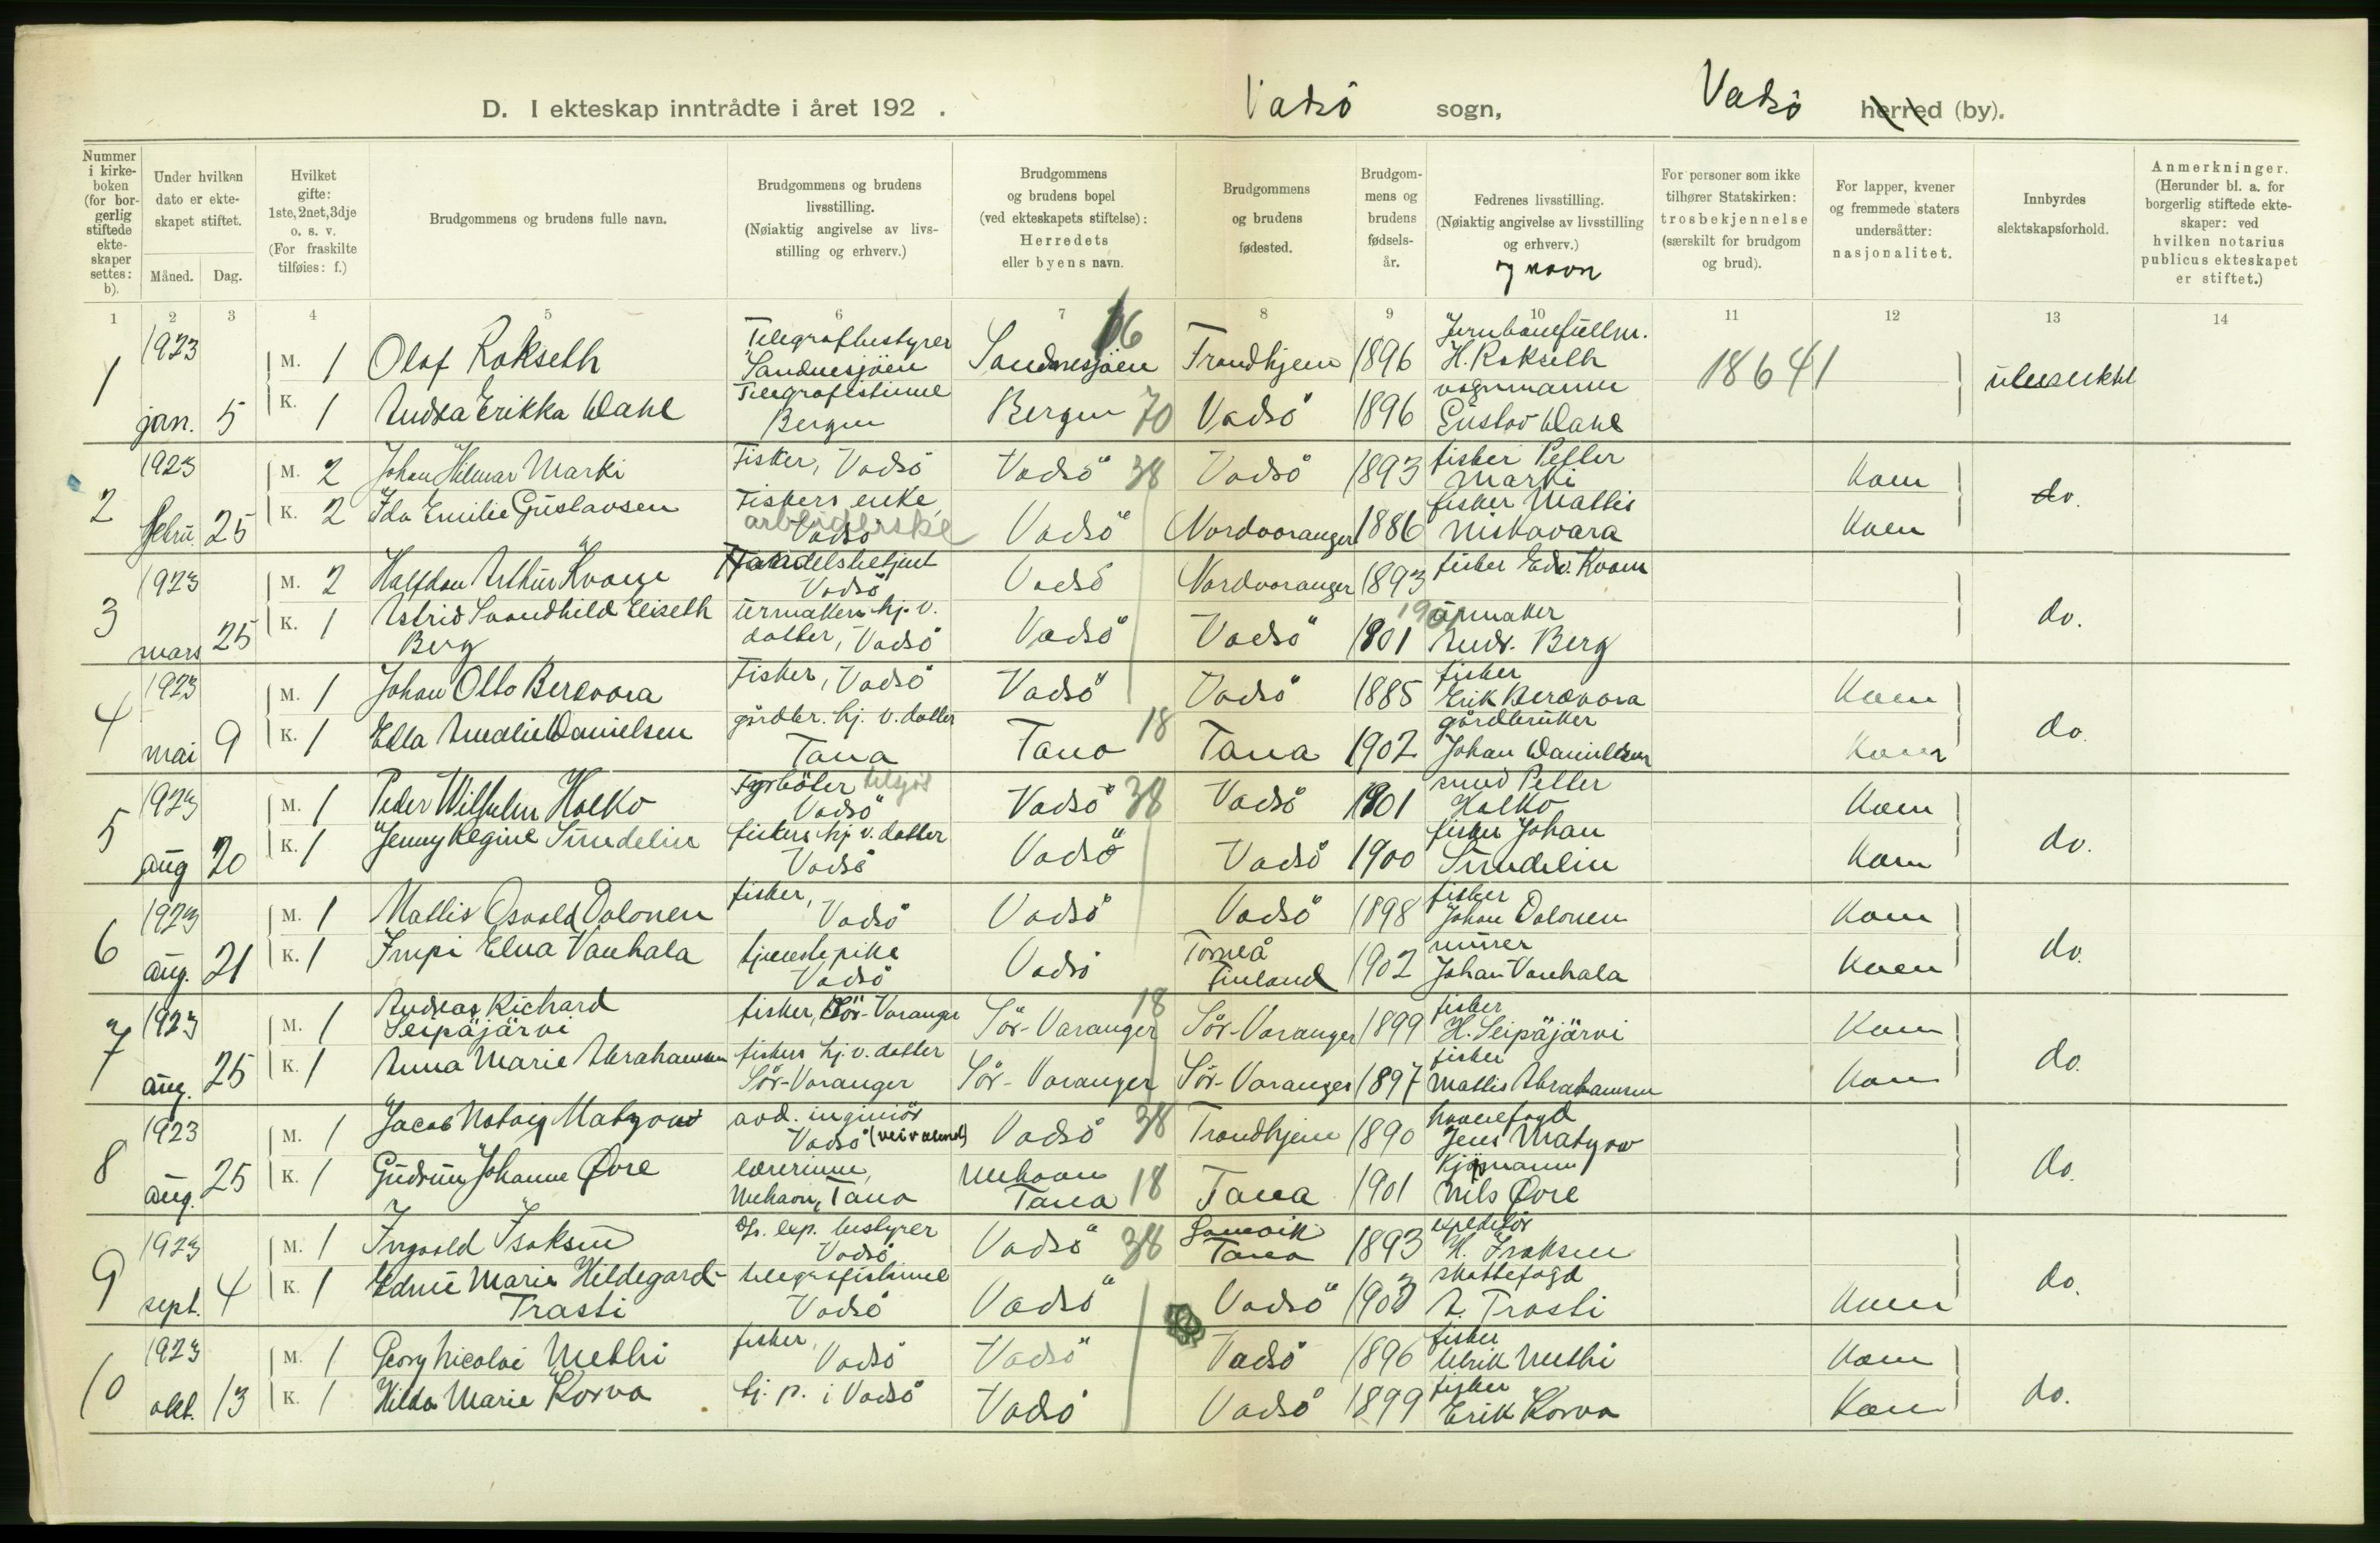 D. I ekteskap inntrådte i året 192 . Vadsö sogn, Vadsö herred (by).
Nummer i kirkeboken (for borgerlig stiftede ekteskaper settes: b).
Under hvilken dato er ekteskapet stiftet.
Måned. Dag.
Hvilket gifte: 1ste, 2net, 3dje o. s. v. (For fraskilte tilføies: f.)
Brudgommens og brudens fulle navn.
Brudgommens og brudens livsstilling. (Nøiaktig angivelse av livsstilling og erhverv.)
Brudgommens og brudens bopel (ved ekteskapets stiftelse): Herredets eller byens navn.
Brudgommens og brudens fødested.
Brudgommens og brudens fødselsår.
Fedrenes livsstilling. (Nøiaktig angivelse av livsstilling og erhverv.) og navn
For personer som ikke tilhører Statskirken: trosbekjennelse (særskilt for brudgom og brud).
For lapper, kvener og fremmede staters undersåtter: nasjonalitet.
Innbyrdes slektskapsforhold.
Anmerkninger. (Herunder bl. a. for borgerlig stiftede ekteskaper: ved hvilken notarius publicus ekteskapet er stiftet.)
1 2 3 4 5 6 7 8 9 10 11 12 13 14
1 1923 M. 1 Olaf Rokseth Telegrafbestyrer Sandnesjöen Sandnesjöen 16 Trondhjem 1896 H. Rokseth 18641
jan. 5 K. 1 Andrea Erikka Dahl Telegrafistinne Bergen Bergen 70 Vadsö 1896 vognmann Gustav Dahl
2 1923 M. 2 Johan Hilmar Marki Fisker, Vadsö Vadsö 38 Vadsö 1893 fisker Petter Marki kven do.
febru. 25 K. 2 Ida Emilie Gustavsen Fiskers enke arbeiderske Vadsö Vadsö Nordvaranger 1886 fisker Mattis Niskavara kven
3 1923 M. 2 Halfdan Arthur Kvam Handelsbetjent Vadsö Vadsö Nordvaranger 1893 fisker Edv. Kvam do.
mars 25 K. 1 Astrid Svandhild Eliseth Berg urmakers hj. v. datter, Vadsö Vadsö Vadsö 1901 urmaker Andr. Berg
4 1923 M. 1 Johan Otto Beravara Fisker, Vadsö Vadsö Vadsö 1885 fisker Erik Beravara kven do.
mai 9 K. 1 Ella Amalie Danielsen gårdbr. hj. v. datter Tana Tana 18 Tana 1902 gårdbruker Johan Danielsen kven
5 1923 M. 1 Peder Wilhelm Halko Fyrböter Vadsö Vadsö 38 Vadsö 1901 smed Petter Halko kven do.
aug 20 K. 1 Jenny Regine Sundelin fiskers hj v. datter Vadsö Vadsö Vadsö 1900 fisker Johan Sundelin kven
6 1923 M. 1 Mattis Osvald Dolonen fisker, Vadsö Vadsö Vadsö 1898 fisker Johan Dolonen kven do.
aug. 21 K. 1 Impi Elna Vanhala tjenestepike Vadsö Vadsö Torneå Finland 1902 murer Johan Vanhala kven
7 1923 M. 1 Andreas Richard Seipäjärvi fisker, Sör-Varanger Sör-Varanger 18 Sör-Varanger 1899 fisker H. Seipäjärvi kven do.
aug. 25 K. 1 Anna Marie Abrahamsen fiskers hj. v. datter Sör-Varanger Sör-Varanger Sör-Varanger 1897 fisker Mattis Abrahamsen kven
8 1923 M. 1 Jacob Matzow avd. ingeniör Vadsö (veivæsnet) Vadsö 38 Trondhjem 1890 havnefogd Jens Matzow do.
aug. 25 K. 1 Gudrun Johanne Øvre lærerinne, Mehavn, Tana Mehavn Tana 18 Tana 1901 Kjöpmann Nils Øvre
9 1923 M. 1 Ingvald Isaksen Ds. exp. bestyrer Vadsö Vadsö 38 Gamvik Tana 1893 expeditör H. Isaksen do.
sept. 4 K. 1 Marie Hildegard Trasti telegrafistinne Vadsö Vadsö Vadsö 1903 skattefogd A. Trasti kven
10 1923 M. 1 Georg Nicolai Methi fisker, Vadsö Vadsö Vadsö 1896 fisker Ulrik Methi kven do.
okt. 13 K. 1 Hilda Marie Korva tj. p. i Vadsö Vadsö Vadsö 1899 fisker Erik Korva kven